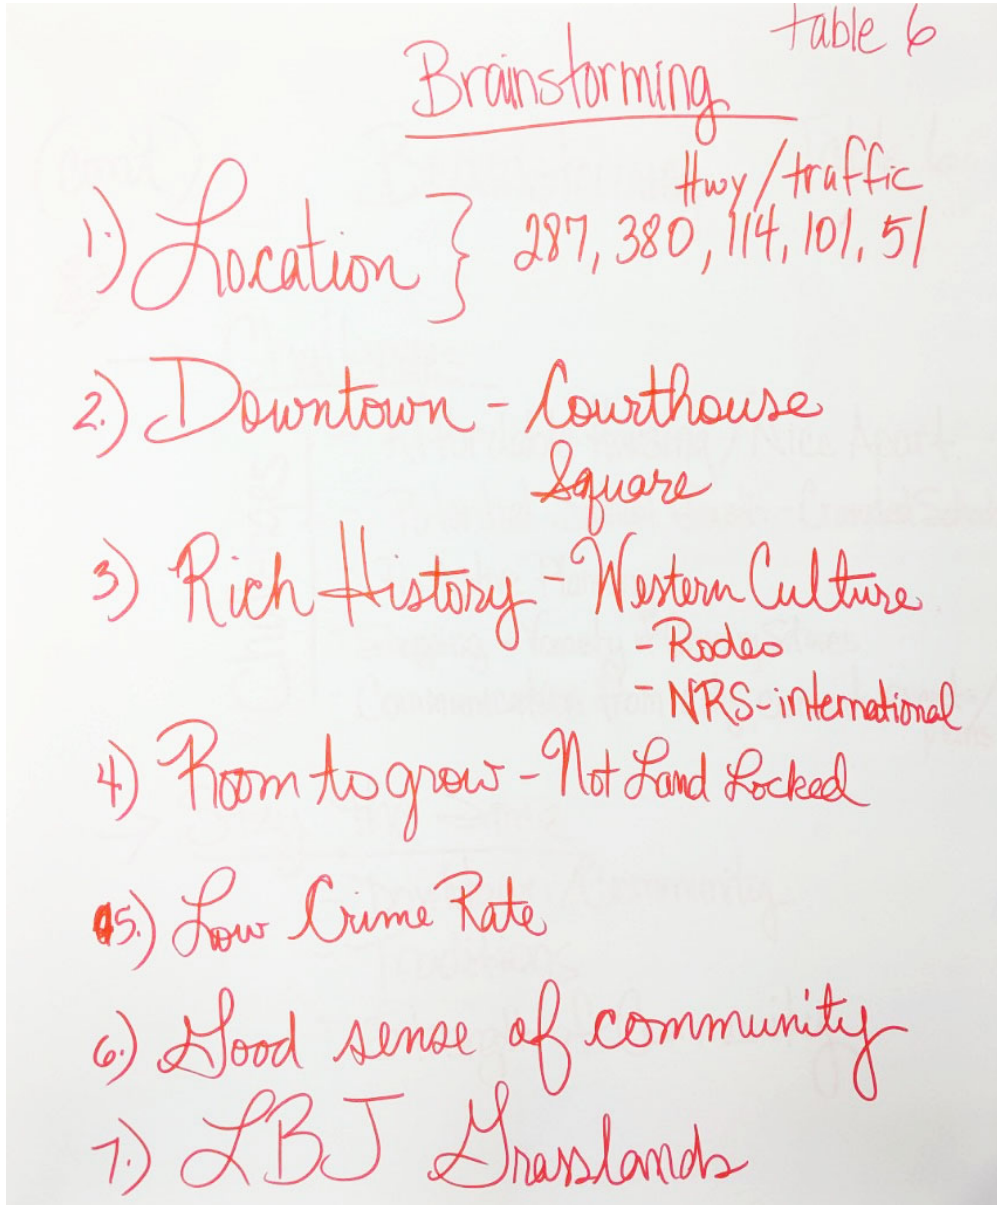 table 6
Brainstorming
Hwy/traffic
1.) Location } 287, 380, 114, 101, 51
2.) Downtown - Courthouse
Square
3) Rich History - Western Culture
- Rodeo
- NRS-international
4) Room to grow - Not Land Locked
5.) Low Crime Rate
6.) Good sense of community
7.) LBJ Grasslands